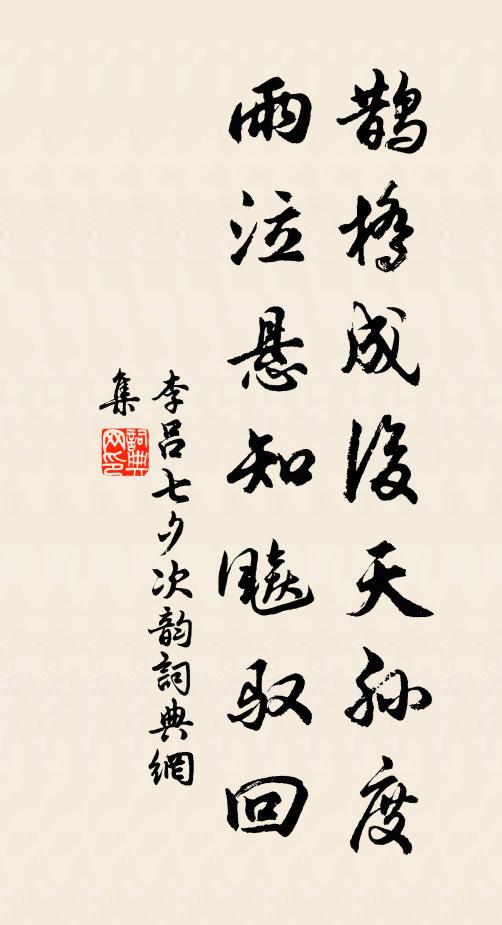 鹊桥成後天孙度
雨泣悬知飚驭回
李吕七夕次韵詞典網
集
詞典网印